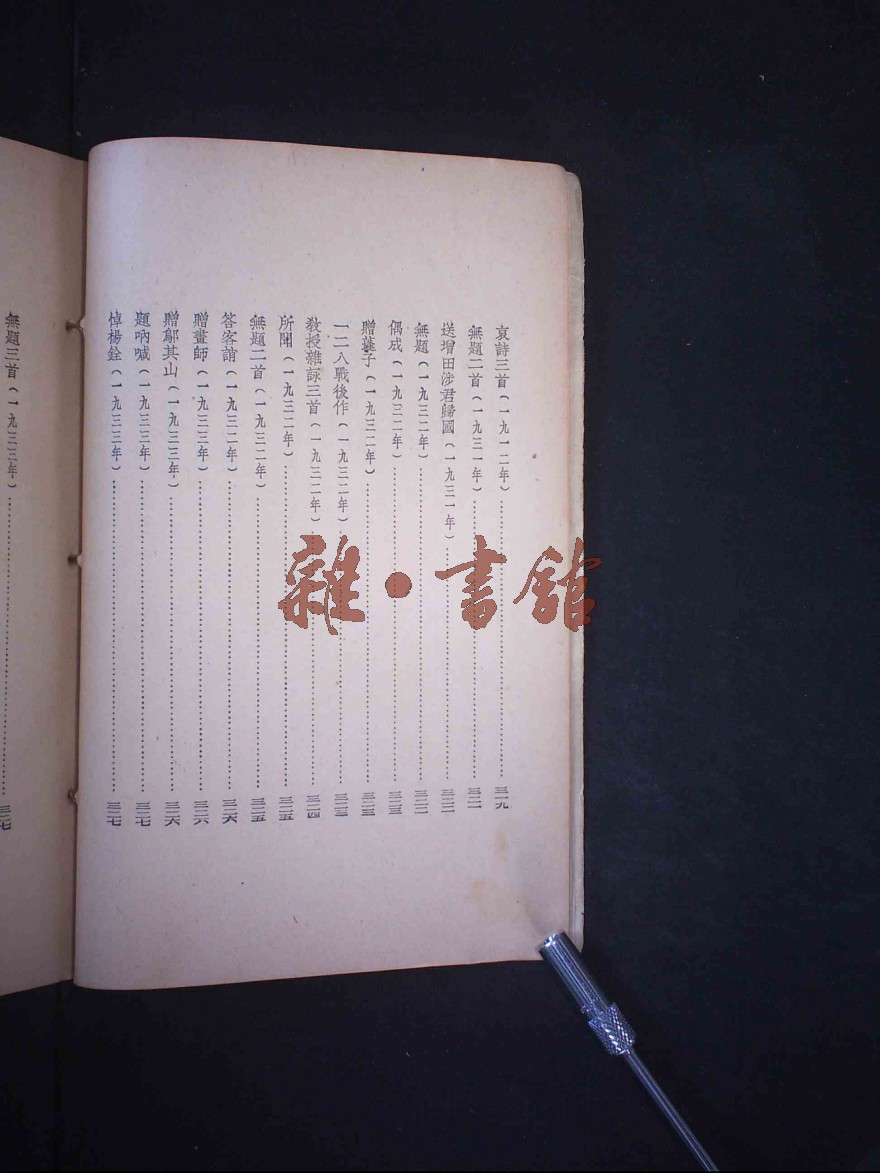 哀詩三首（一九一二年）……三一九
無題二首（一九三一年）……三二一
送增田涉君歸國（一九三一年）……三二二
無題（一九三二年）……三二二
偶成（一九三二年）……三二三
贈蓬子（一九三二年）……三二三
一二八戰後作（一九三二年）……三二三
教授雜詠三首（一九三二年）……三二四
所聞（一九三二年）……三二五
無題二首（一九三二年）……三二五
答客誚（一九三二年）……三二六
贈畫師（一九三三年）……三二六
贈鄔其山（一九三三年）……三二六
題吶喊（一九三三年）……三二七
悼楊銓（一九三三年）……三二七
無題三首（一九三三年）……三二七
雜·書館